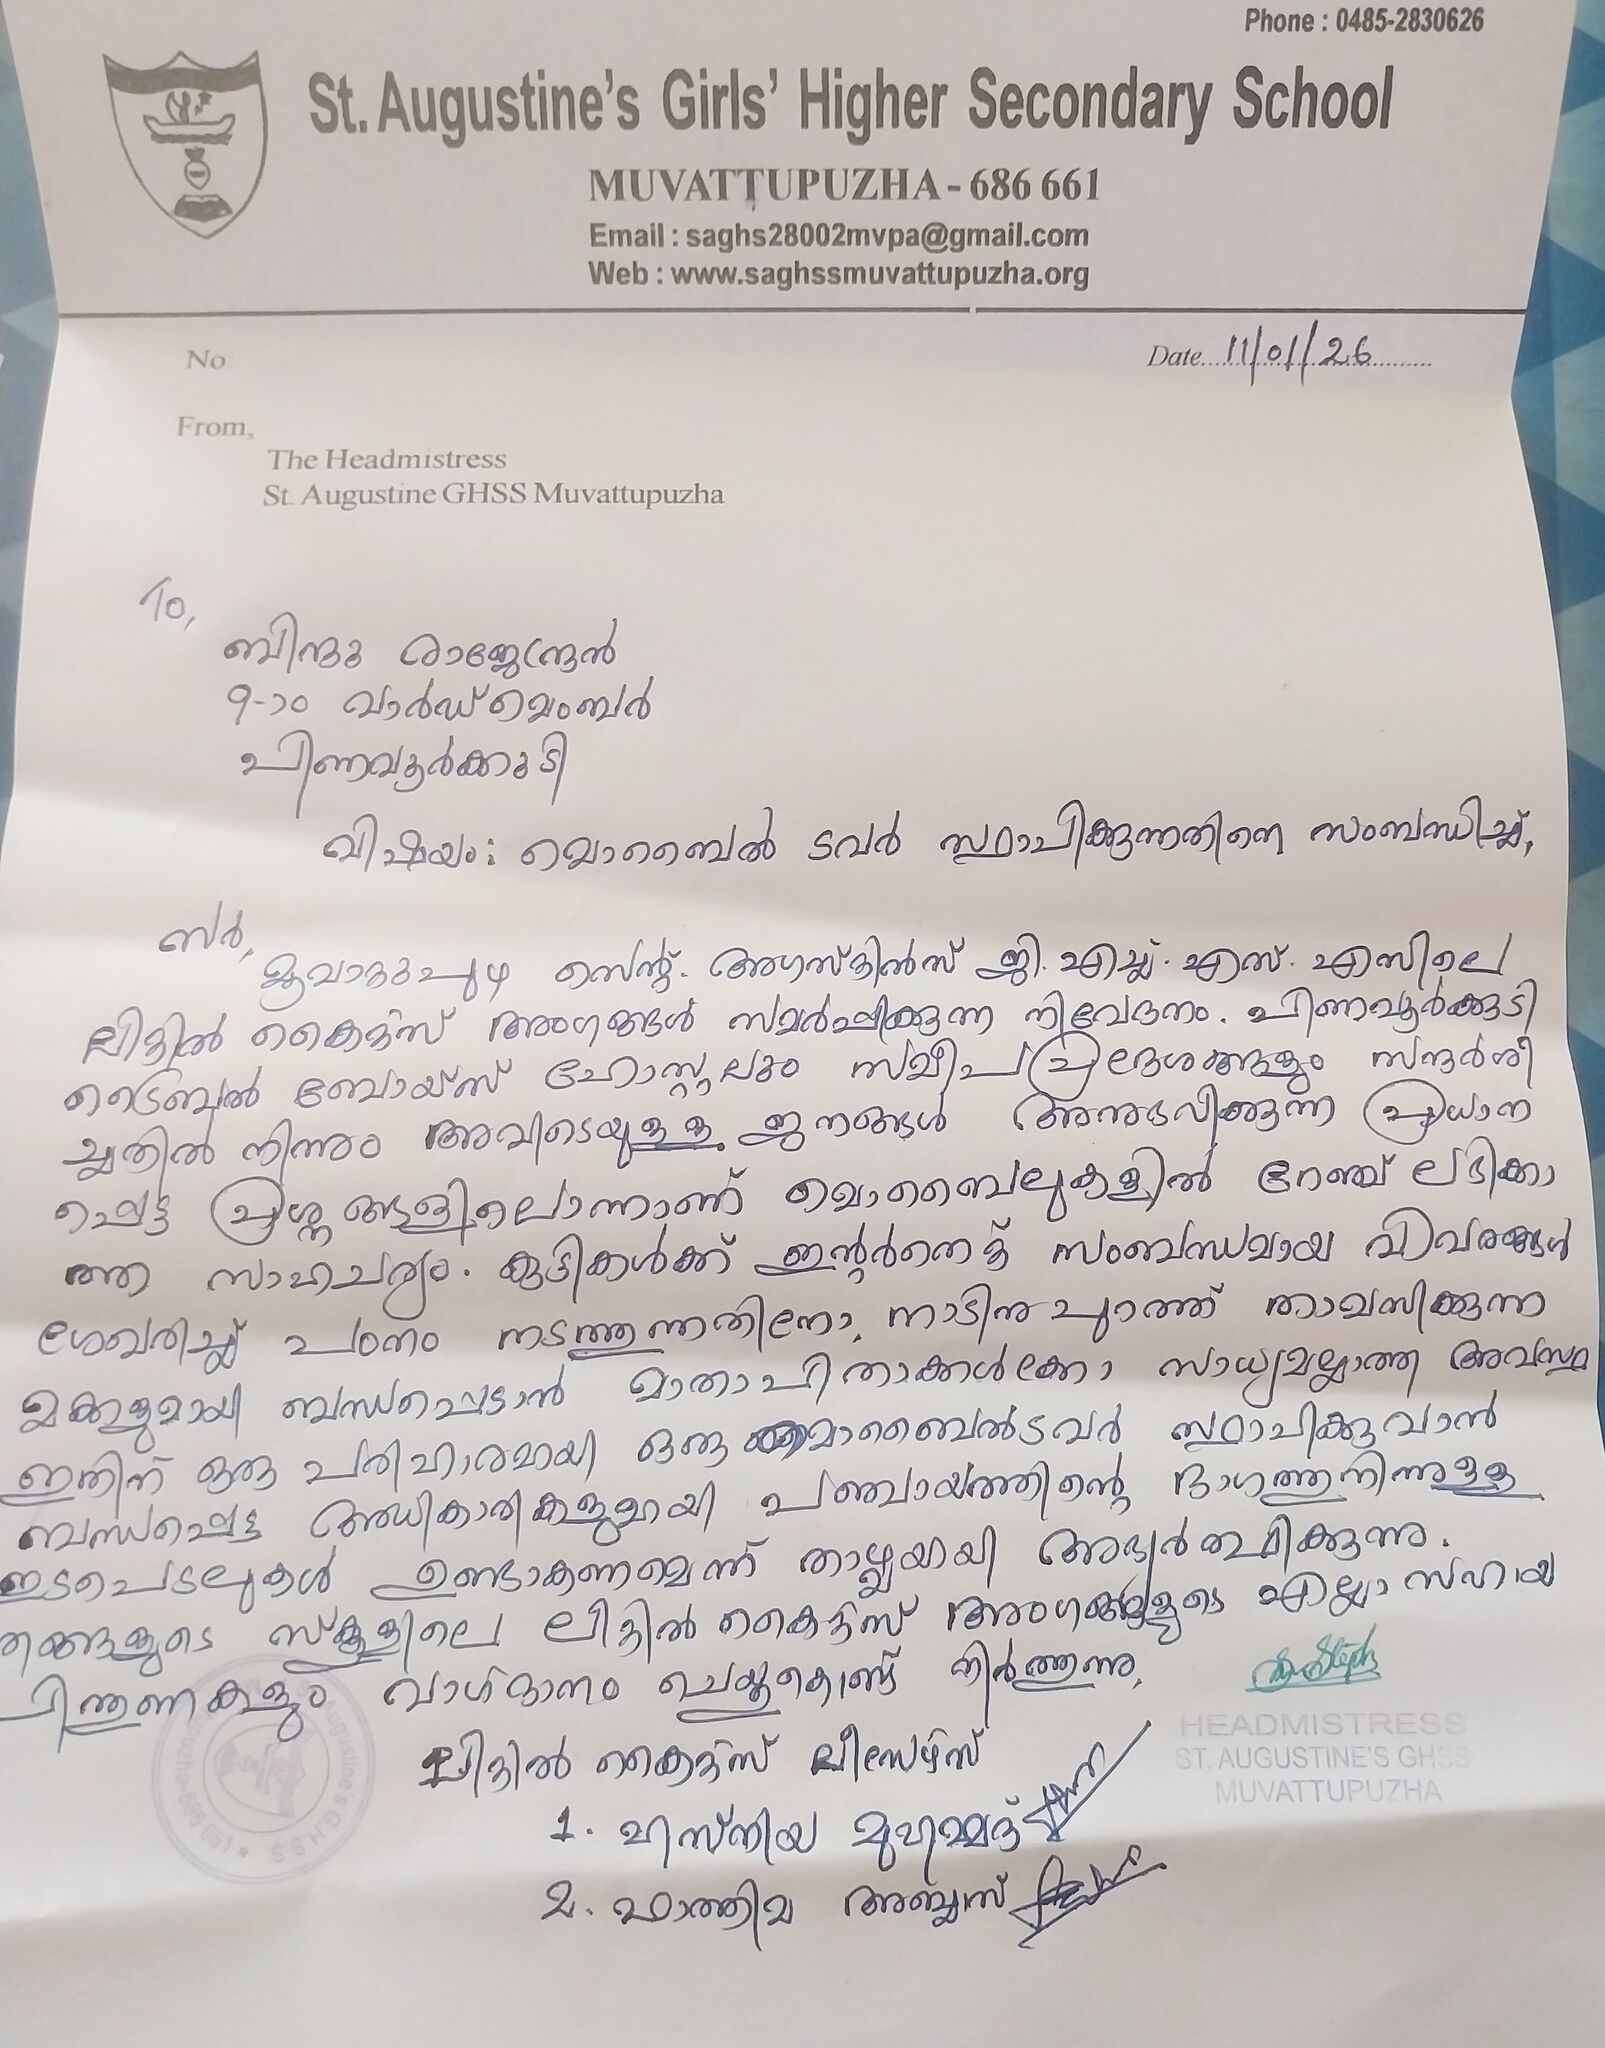 Phone : 0485-2830626
St. Augustine's Girls' Higher Secondary School
MUVATTUPUZHA - 686 661
Email : saghs28002mvpa@gmail.com
Web : www.saghssmuvattupuzha.org
No:
Date 11/01/26
From,
The Headmistress
St. Augustine GHSS Muvattupuzha
To,
ബിന്ദു രാജേന്ദ്രൻ
9-ാം വാർഡ് മെംബർ
പിണവൂർക്കുടി
വിഷയം: മൊബൈൽ ടവർ സ്ഥാപിക്കുന്നതിനെ സംബന്ധിച്ച്,
സർ,
മൂവാറ്റുപുഴ സെന്റ്. അഗസ്റ്റിൻസ് ജി. എച്ച്. എസ്. എസിലെ
ലിറ്റിൽ കൈറ്റ്സ് അംഗങ്ങൾ സമർപ്പിക്കുന്ന നിവേദനം. പിണവൂർക്കുടി
ട്രൈബൽ ബോയ്സ് ഹോസ്റ്റലും സമീപപ്രദേശങ്ങളും സന്ദർശി
ച്ചതിൽ നിന്നും അവിടെയുള്ള ജനങ്ങൾ അനുഭവിക്കുന്ന പ്രധാന
പ്പെട്ട പ്രശ്നങ്ങളിലൊന്നാണ് മൊബൈലുകളിൽ റേഞ്ച് ലഭിക്കാ
ത്ത സാഹചര്യം. കുട്ടികൾക്ക് ഇന്റർനെറ്റ് സംബന്ധമായ വിവരങ്ങൾ
ശേഖരിച്ച് പഠനം നടത്തുന്നതിനോ, നാടിനു പുറത്ത് താമസിക്കുന്ന
മക്കളുമായി ബന്ധപ്പെടാൻ മാതാപിതാക്കൾക്കോ സാധ്യമല്ലാത്ത അവസ്ഥ
ഇതിന് ഒരു പരിഹാരമായി ഒരു മൊബൈൽടവർ സ്ഥാപിക്കുവാൻ
ബന്ധപ്പെട്ട അധികാരികളുമായി പഞ്ചായത്തിന്റെ ഭാഗത്തുനിന്നുള്ള
ഇടപെടലുകൾ ഉണ്ടാകണമെന്ന് താഴ്മയായി അഭ്യർത്ഥിക്കുന്നു.
ഞങ്ങളുടെ സ്കൂളിലെ ലിറ്റിൽ കൈറ്റ്സ് അംഗങ്ങളുടെ എല്ലാ സഹായ
പിന്തുണകളും വാഗ്ദാനം ചെയ്തുകൊണ്ട് നിർത്തുന്നു.
HEADMISTRESS
ST. AUGUSTINE'S GHSS
MUVATTUPUZHA
ലിറ്റിൽ കൈറ്റ്സ് ലീഡേഴ്സ്
1. ഹസ്നിയ മുഹമ്മദ്
2. ഫാത്തിമ അബ്ബാസ്